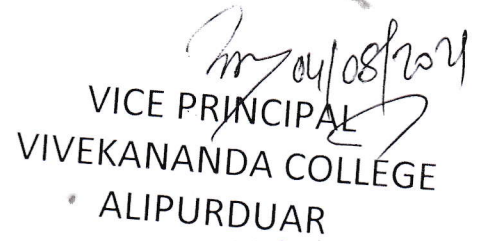 04/08/2021
VICE PRINCIPAL
VIVEKANANDA COLLEGE
ALIPURDUAR